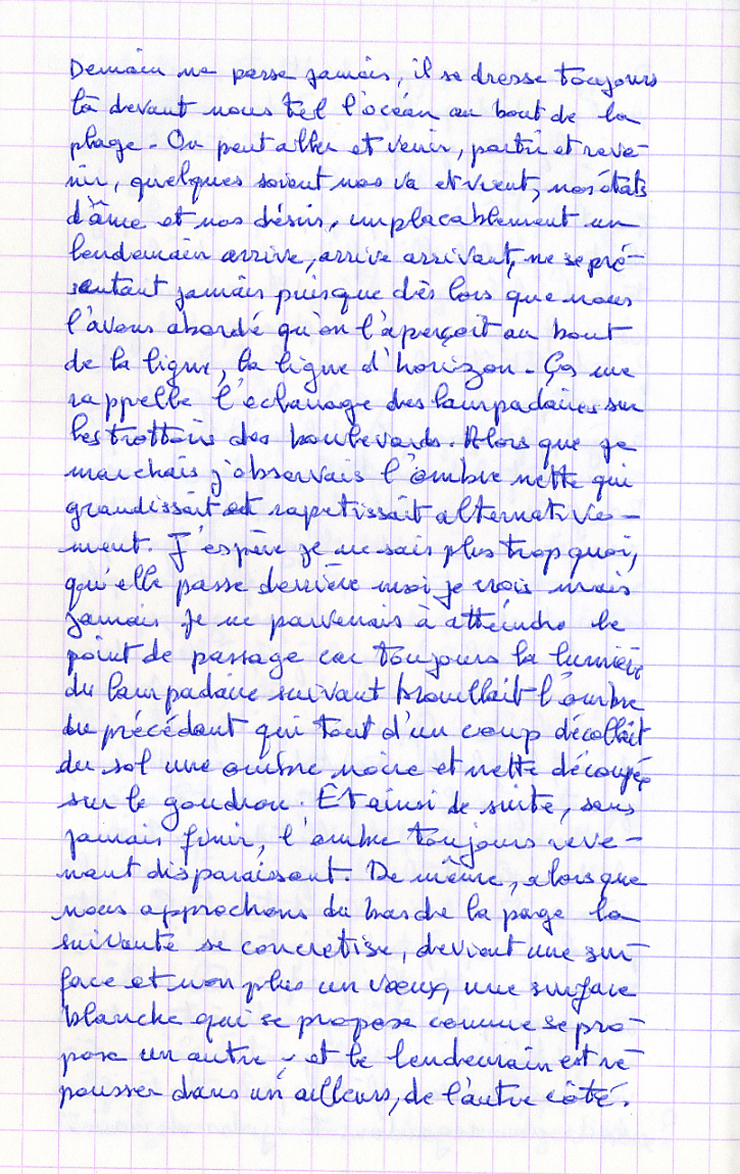 Demain ne passe jamais, il se dresse toujours
là devant nous tel l'océan au bout de la
plage - On peut aller et venir, partir et reve-
nir, quelques soient nos va et vient, nos états
d'âme et nos désirs, implacablement un
lendemain arrive, arrive arrivant, ne se pré-
sentant jamais puisque dès lors que nous
l'avons abordé qu'on l'aperçoit au bout
de la ligne, la ligne d'horizon - Ça me
rappelle l'éclairage des lampadaires sur
les trottoirs des boulevards. Alors que je
marchais j'observais l'ombre nette qui
grandissait et rapetissait alternative-
ment. J'espère je ne sais plus trop quoi,
qu'elle passe derrière moi je crois mais
jamais je ne parvenais à atteindre le
point de passage car toujours la lumière
du lampadaire suivant brouillait l'ombre
du précédant qui tout d'un coup décollait
du sol une ombre noire et nette découpée
sur le goudron. Et ainsi de suite, sans
jamais finir, l'ombre toujours reve-
nant disparaissant. De même, alors que
nous approchons du bas de la page la
suivante se concrétise, devient une sur-
face et non plus un vœux, une surface
blanche qui se propose comme se pro-
pose un autre - et le lendemain est re
pousser dans un ailleurs, de l'autre côté.